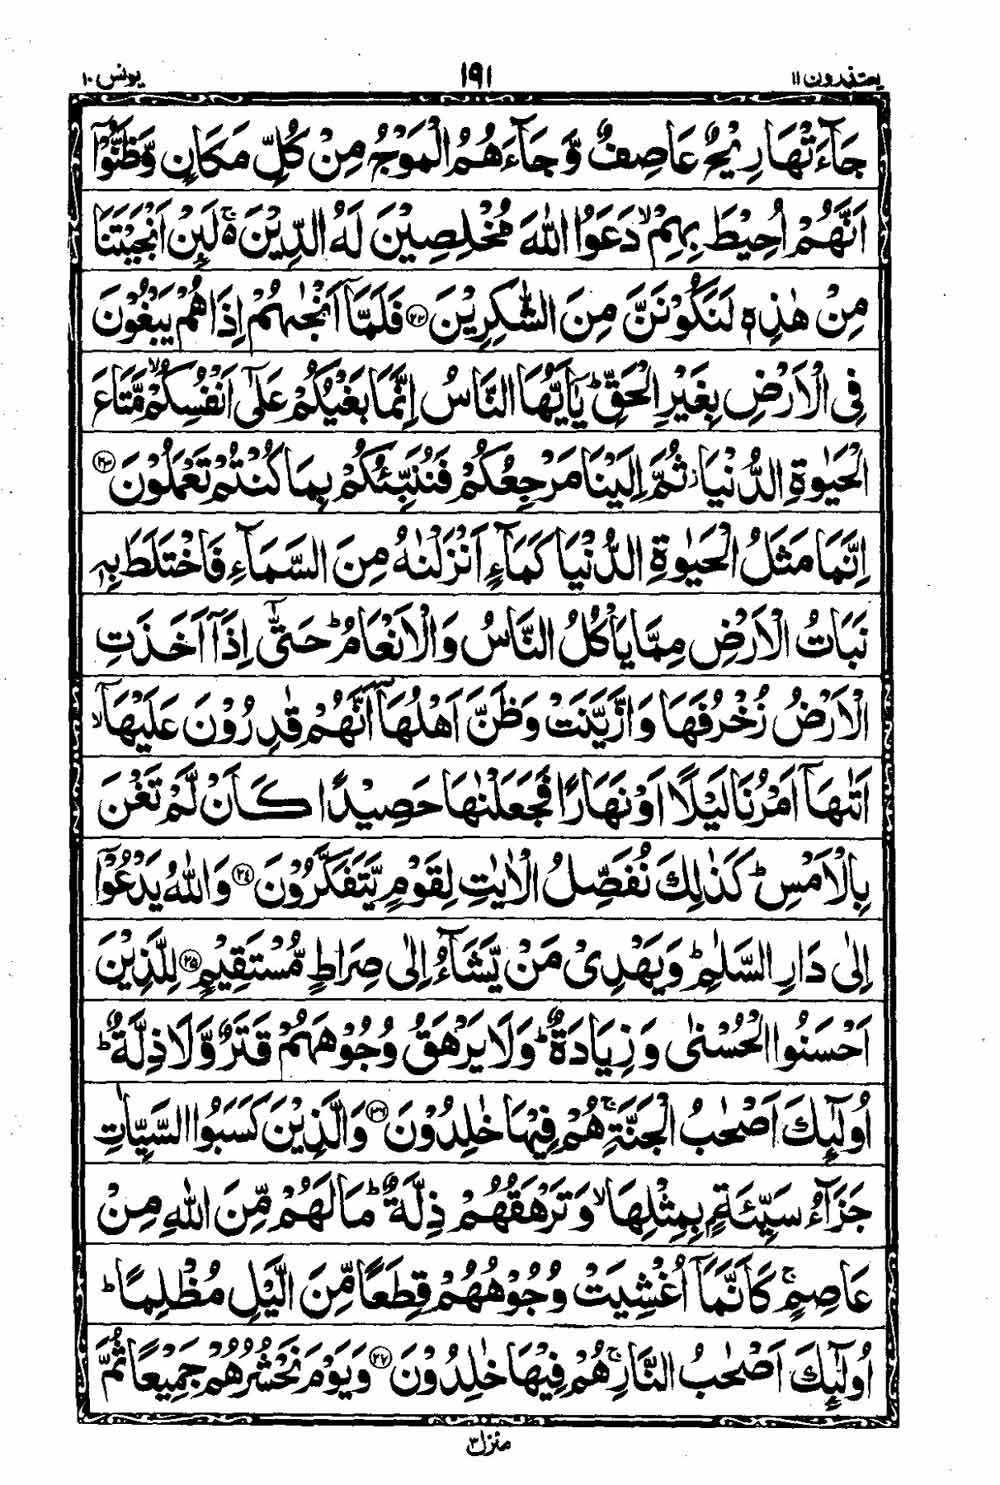 یعتذرون ۱۱
۱۹۱
یونس ۱۰
جَآءَتْهَا رِیْحٌ عَاصِفٌ وَّ جَآءَهُمُ الْمَوْجُ مِنْ كُلِّ مَكَانٍ وَّظَنُّوْۤا
اَنَّهُمْ اُحِیْطَ بِهِمْ ۙ دَعَوُا اللّٰهَ مُخْلِصِیْنَ لَهُ الدِّیْنَ ەۚ لَىِٕنْ اَنْجَیْتَنَا
مِنْ هٰذِهٖ لَنَكُوْنَنَّ مِنَ الشّٰكِرِیْنَ ﴿۲۲﴾ فَلَمَّاۤ اَنْجٰىهُمْ اِذَا هُمْ یَبْغُوْنَ
فِی الْاَرْضِ بِغَیْرِ الْحَقِّ ؕ یٰۤاَیُّهَا النَّاسُ اِنَّمَا بَغْیُكُمْ عَلٰۤی اَنْفُسِكُمْ ۙ مَّتَاعَ
الْحَیٰوةِ الدُّنْیَا ؗ ثُمَّ اِلَیْنَا مَرْجِعُكُمْ فَنُنَبِّئُكُمْ بِمَا كُنْتُمْ تَعْمَلُوْنَ ﴿۲۳﴾
اِنَّمَا مَثَلُ الْحَیٰوةِ الدُّنْیَا كَمَآءٍ اَنْزَلْنٰهُ مِنَ السَّمَآءِ فَاخْتَلَطَ بِهٖ
نَبَاتُ الْاَرْضِ مِمَّا یَاْكُلُ النَّاسُ وَالْاَنْعَامُ ؕ حَتّٰۤی اِذَاۤ اَخَذَتِ
الْاَرْضُ زُخْرُفَهَا وَازَّیَّنَتْ وَظَنَّ اَهْلُهَاۤ اَنَّهُمْ قٰدِرُوْنَ عَلَیْهَاۤ ۙ
اَتٰىهَاۤ اَمْرُنَا لَیْلًا اَوْ نَهَارًا فَجَعَلْنٰهَا حَصِیْدًا كَاَنْ لَّمْ تَغْنَ
بِالْاَمْسِ ؕ كَذٰلِكَ نُفَصِّلُ الْاٰیٰتِ لِقَوْمٍ یَّتَفَكَّرُوْنَ ﴿۲۴﴾ وَاللّٰهُ یَدْعُوْۤا
اِلٰی دَارِ السَّلٰمِ ؕ وَیَهْدِیْ مَنْ یَّشَآءُ اِلٰی صِرَاطٍ مُّسْتَقِیْمٍ ﴿۲۵﴾ لِلَّذِیْنَ
اَحْسَنُوا الْحُسْنٰی وَزِیَادَةٌ ؕ وَلَا یَرْهَقُ وُجُوْهَهُمْ قَتَرٌ وَّلَا ذِلَّةٌ ؕ
اُولٰٓىِٕكَ اَصْحٰبُ الْجَنَّةِ ۚ هُمْ فِیْهَا خٰلِدُوْنَ ﴿۲۶﴾ وَالَّذِیْنَ كَسَبُوا السَّیِّاٰتِ
جَزَآءُ سَیِّئَةٍۭ بِمِثْلِهَا ۙ وَتَرْهَقُهُمْ ذِلَّةٌ ؕ مَا لَهُمْ مِّنَ اللّٰهِ مِنْ
عَاصِمٍ ۚ كَاَنَّمَاۤ اُغْشِیَتْ وُجُوْهُهُمْ قِطَعًا مِّنَ الَّیْلِ مُظْلِمًا ؕ
اُولٰٓىِٕكَ اَصْحٰبُ النَّارِ ۚ هُمْ فِیْهَا خٰلِدُوْنَ ﴿۲۷﴾ وَیَوْمَ نَحْشُرُهُمْ جَمِیْعًا ثُمَّ
منزل ۳